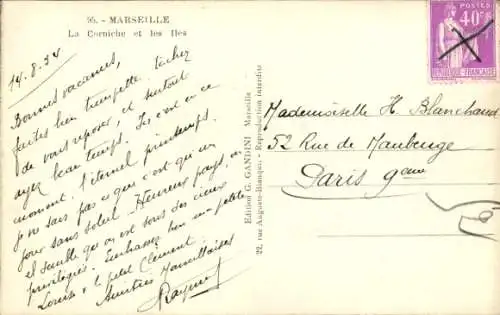 95. - MARSEILLE
La Corniche et les Iles
14.8.34
Bonnes vacances,
faites bien trempette, tâchez
de vous reposer, et surtout
ayez beau temps. Ici c'est en ce
moment l'éternel printemps.
je ne sais pas ce que c'est qu'un
jour sans soleil. Heureux pays, où
il semble qu'on est sous des cieux
privilégiés. Embrassez bien ma petite
Louise & le petit Clément.
Amitiés Marseillaises
Raymond
Edition G. GANDINI Marseille
22, rue Auguste-Blanqui - Reproduction interdite
POSTES
40c
REPUBLIQUE FRANÇAISE
Mademoiselle H. Blanchaud
52 Rue de Maubeuge
Paris 9eme